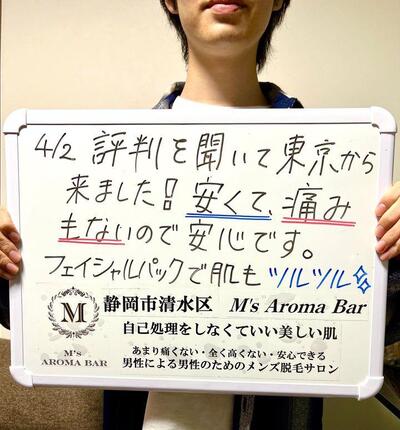 4/2 評判を聞いて東京から
来ました! 安くて、痛み
もないので安心です。
フェイシャルパックで肌もツルツル
M
M's
AROMA BAR
静岡市清水区 M's Aroma Bar
自己処理をしなくていい美しい肌
あまり痛くない・全く高くない・安心できる
男性による男性のためのメンズ脱毛サロン